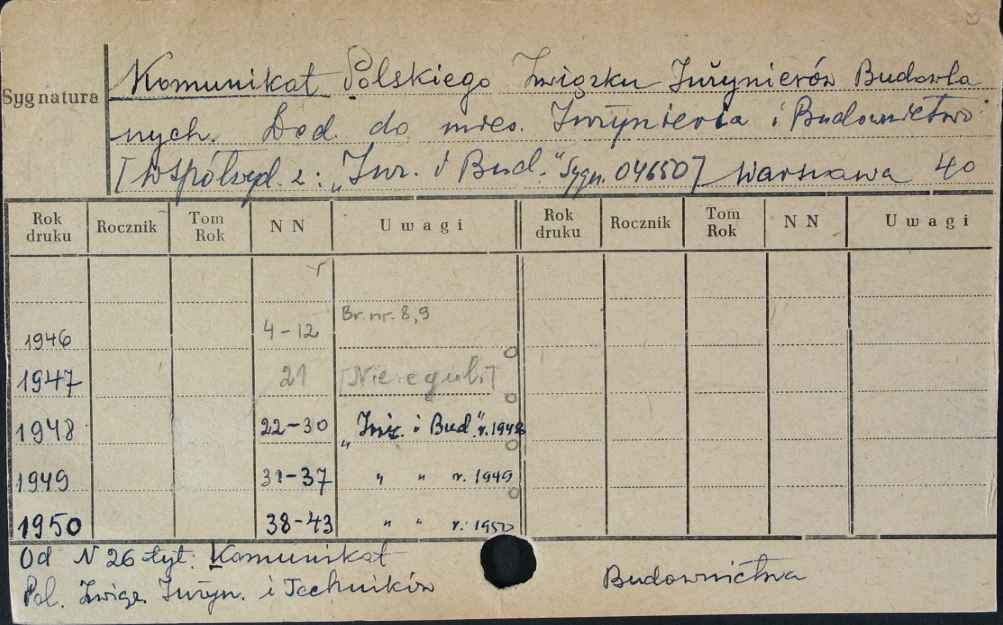 Sygnatura
Komunikat Polskiego Związku Inżynierów Budowla
nych. Dod. do mies. Inżynieria i Budownictwo
[Współwyd. z: „Inż. i Bud." Sygn. 04650] Warszawa 40
Rok druku Rocznik Tom Rok N N Uwagi Rok druku Rocznik Tom Rok N N Uwagi
1946 4-12 Br. nr. 8,9
1947 21 [Nieregul.]
1948 22-30 „Inż. i Bud." r. 1948
1949 31-37 " " r. 1949
1950 38-43 " " r. 1950
Od N 26 tyt. Komunikat
Pol. Związ. Inżyn. i Techników
Budownictwa